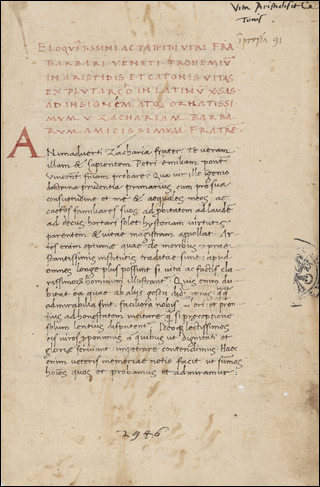 Vita Aristidis et Ca
Tonis
ELOQVĒTISSIMI AC VIRI FRA
BARBARI VENETI PROHEMIV̄
IN ARISTIDIS ET CATONIS VITAS
EX PLVTARCO IN LATINV̄
AD INSIGNĒM ATQ. ORNATISSI
MVM V. ZACHARIAM BARBA
RVM AMICISSIMVM FRATRĒ.
ANimaduerti Zacharia frater Te ueram
illam & sapientem Petri emiliani pont
Vincent. suam probare: Qua uir ille ingenio
doctrina prudentia primarius cum pro sua
consuetudine et me & aequales meos ac
caeteros familiares suos ad portatem ad laudē
ad decus hortari solet hystoriam uirtutis
parentem & uitae magistram appellat. Ar
tes enim optimae quae de moribus & prae
stantissimis institutis traditae sunt: apud
omnes longe plus possunt si uita ac factis cla
rissimorū hominum illustrant. Quis enim du
bitat ea quae ab aliis gesta
admirabilia sunt faciliora nobis
ad honestatem incitare q̄ si preceptione
solum lentius disputent. lectissimos
uiros pponimus a quibus ut dignitati et
gloriae seruiant impetrare contendimus. Haec
enim ueteris memoriae notio facit ut sumos
hoīes quos et probamus et admiramur
2946